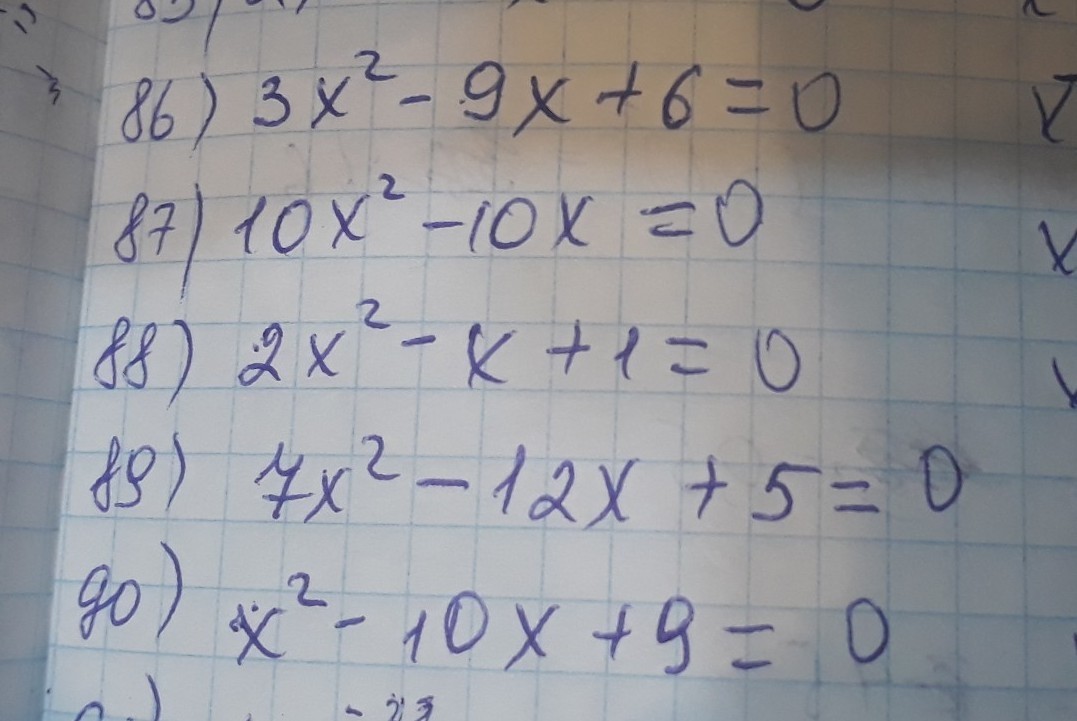 86) 3x² - 9x + 6 = 0
87) 10x² - 10x = 0
88) 2x² - x + 1 = 0
89) 7x² - 12x + 5 = 0
90) x² - 10x + 9 = 0